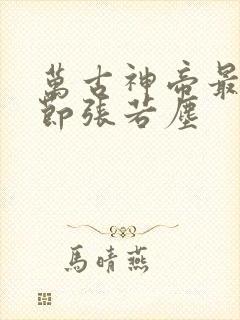 萬古神帝最
節張若塵
馬晴燕